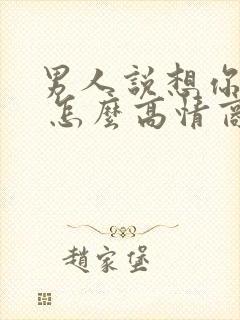 男人說想你
怎麼高情商
趙家堡